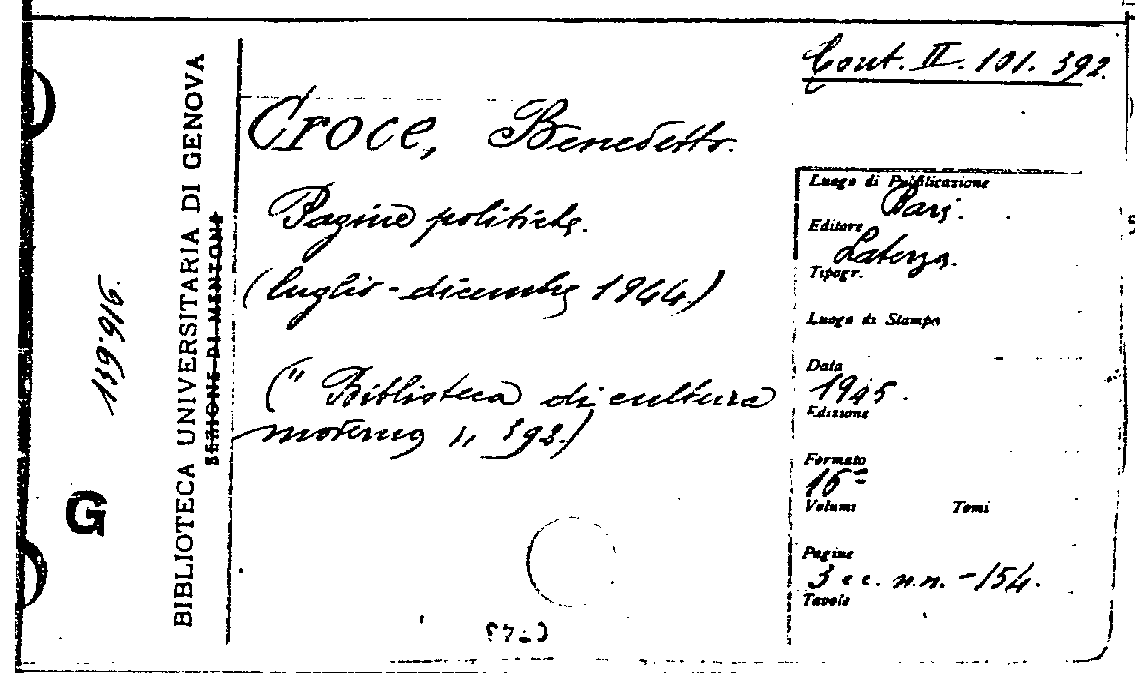 Cont. II. 101. 392.
Croce, Benedetto.
Pagine politiche.
(luglio - dicembre 1944.)
(" Biblioteca di cultura
moderna ", 392.)
Luogo di Pubblicazione
Bari.
Editore
Laterza.
Tipogr.
Luogo di Stampa
Data
1945.
Edizione
Formato
16°
Volumi Tomi
Pagine
3 cc. n.n. - 154.
Tavole
BIBLIOTECA UNIVERSITARIA DI GENOVA
SEZIONE DI MENTONE
139.916.
G